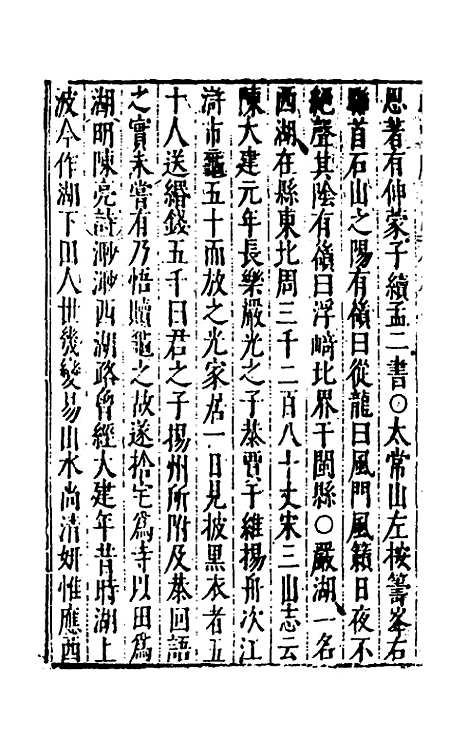 思著有伸蒙子續孟二書○太常山左按籌峯右
聯首石山之陽有嶺曰從龍曰風門風籟日夜不
絕聲其陰有嶺曰浮﨑北界于閩縣○嚴湖一名
西湖在縣東北周三千二百八十丈宋三山志云
陳大建元年長樂嚴光之子恭賈于維揚舟次江
滸市龜五十而放之光家居一日見披黑衣者五
十人送緡錢五千曰君之子揚州所附及恭回語
之實未嘗有乃悟贖龜之故遂捨宅爲寺以田爲
湖明陳亮詩渺渺西湖路曾經大建年昔時湖上
波今作湖下田人世幾變易山水尚清妍惟應西